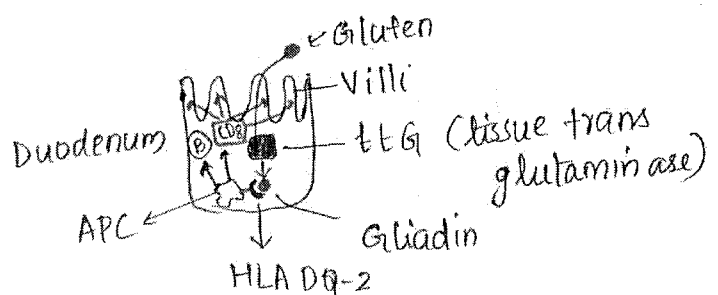 Gluten
Villi
CD8
B
Duodenum
ttG (tissue trans
glutaminase)
APC
Gliadin
HLA DQ-2